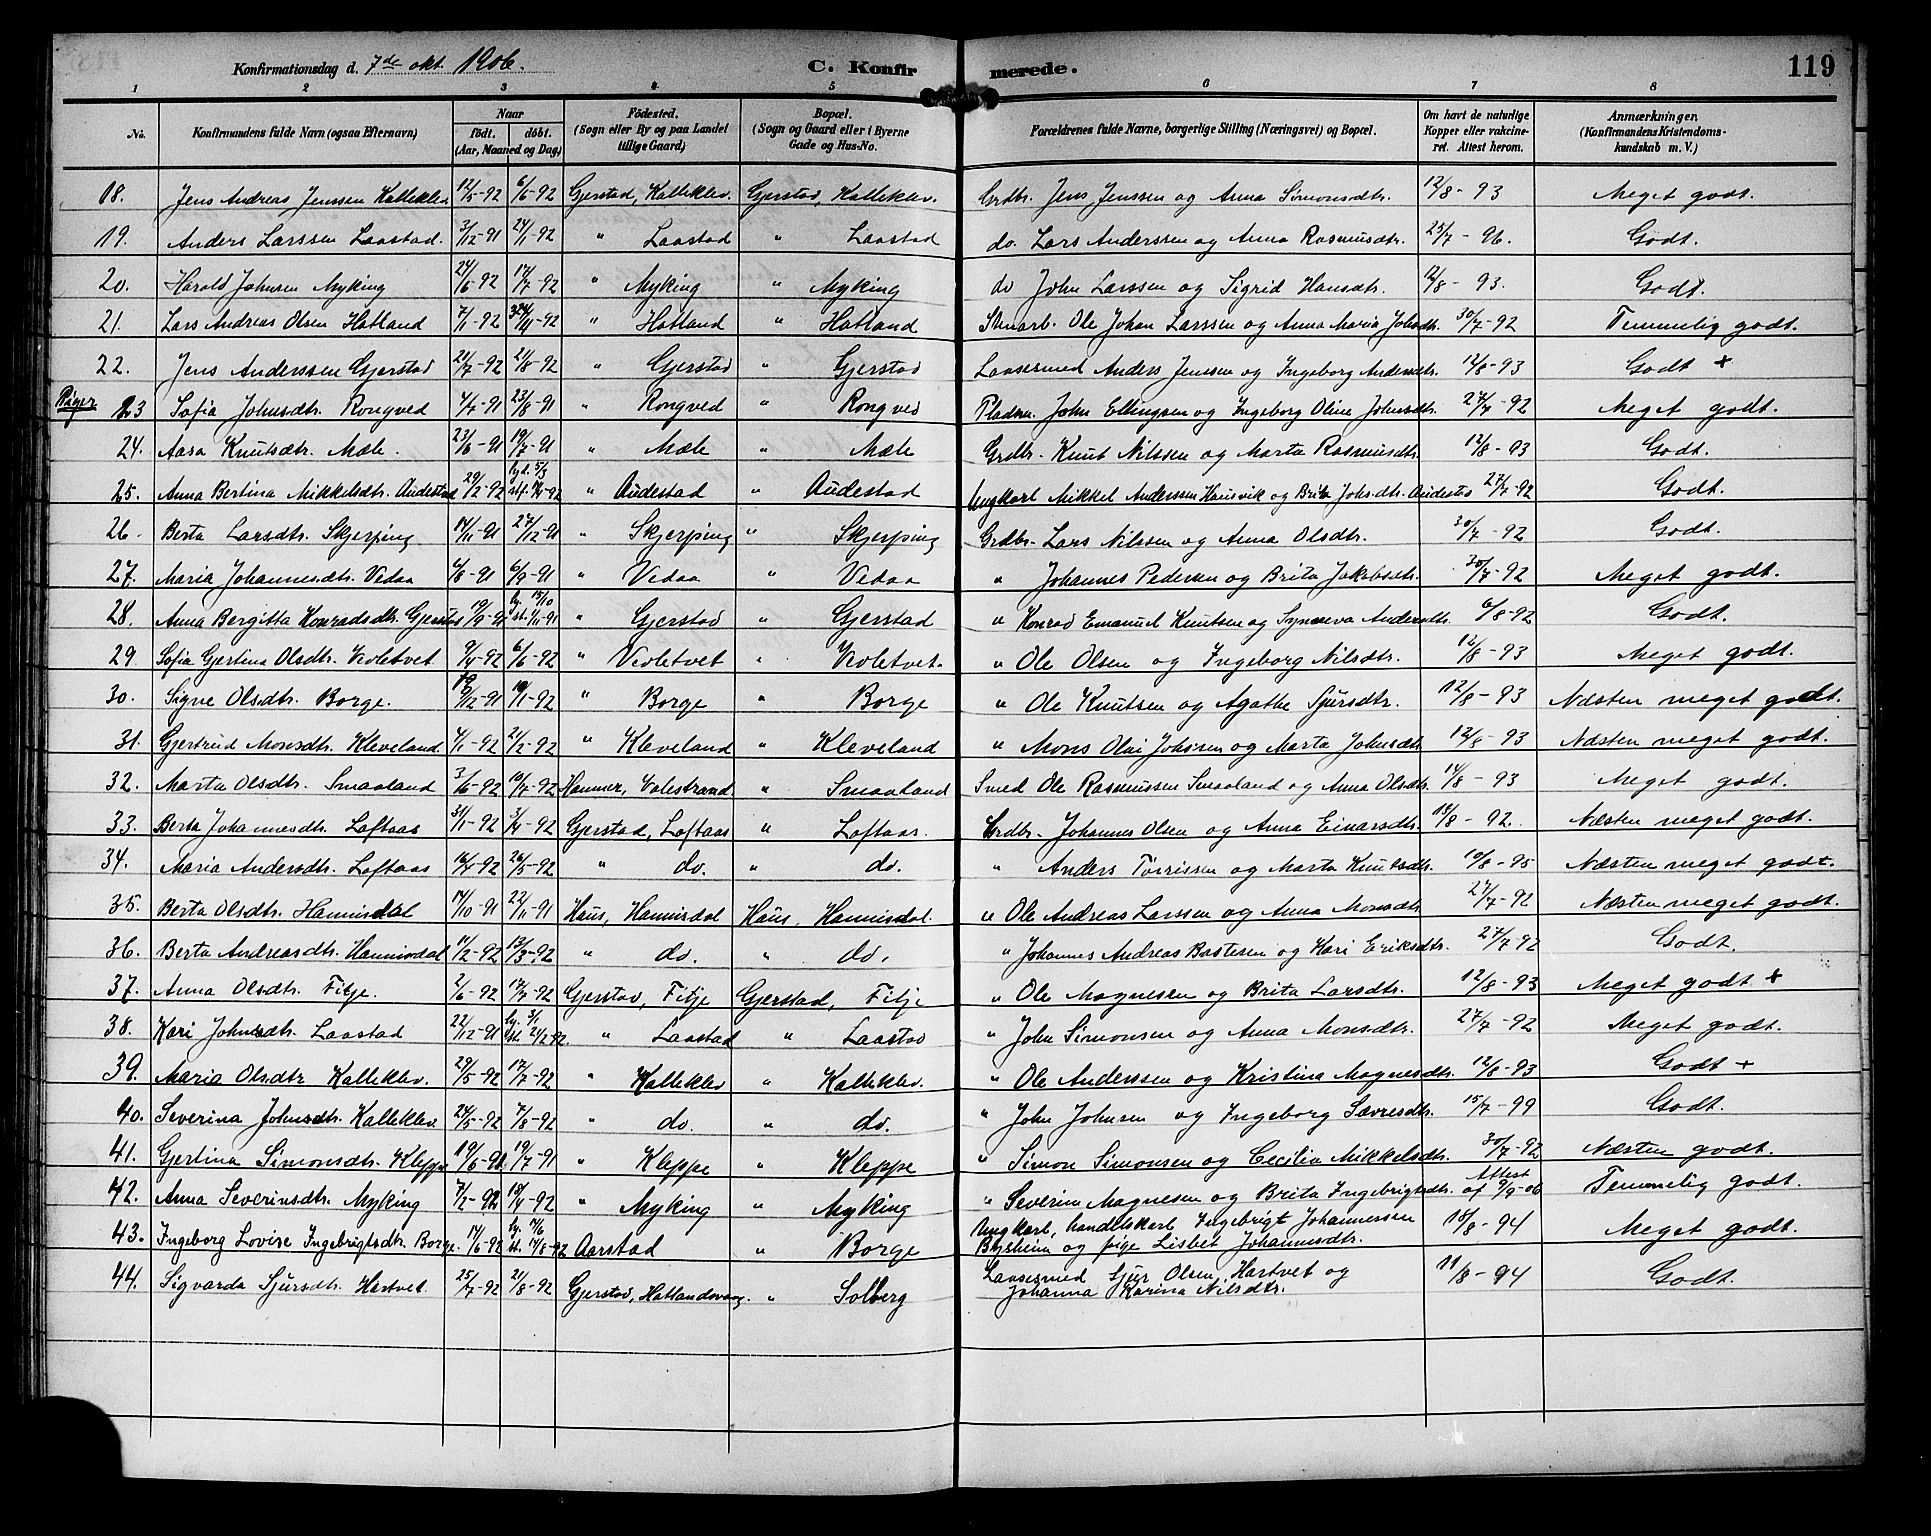 Konfirmationsdag d. 7de okt. 1906. C. Konfirmerede. 119
1 2 3 4 5 6 7 8
No. Konfirmandens fulde Navn (ogsaa Efternavn) Naar født. døbt. (Aar, Maaned og Dag) Fødested. (Sogn eller By og paa Landet tillige Gaard) Bopæl. (Sogn og Gaard eller i Byerne Gade og Hus-No. Forældrenes fulde Navne, borgerlige Stilling (Næringsvei) og Bopæl. Om havt de naturlige Kopper eller vakcineret. Attest herom. Anmærkninger. (Konfirmandens Kristendomskundskab m. V.)
18. Jens Andreas Jenssen Kalleklev 12/5-92 6/6-92 Gjerstad, Kalleklev. Gjerstad, Kalleklev. Grdbr. Jens Jenssen og Anna Simonsdtr. 12/8-93 Meget godt.
19. Anders Larssen Laastad. 3/12-91 24/1-92 " Laastad " Laastad do. Lars Anderssen og Anna Rasmusdtr. 25/7-96. Godt.
20. Harald Johnsen Myking 24/6-92 17/7-92 " Myking " Myking do John Larssen og Sigrid Hansdtr. 12/8-93. Godt.
21. Lars Andreas Olsen Hatland 7/11-92 -92 " Hatland " Hatland Ole Johan Larssen og Anna Maria Johsdtr. 30/7-92 Temmelig godt.
22. Jens Anderssen Gjerstad 21/7-92 21/8-92 " Gjerstad " Gjerstad Laasesmed Anders Jenssen og Ingeborg Andersdtr. 12/8-93 Godt +
Piger 23 Sofia Johnsdtr. Rongved 4/7-91 23/8-91 " Rongved " Rongved Pladsm. John Ellingsen og Ingeborg Oline Johnsdtr. 27/7-92 Meget godt.
24. Aasa Knutsdtr. Mæle. 23/6-91 19/7-91 " Mæle " Mæle Grdbr. Knut Nilssen og Marta Rasmusdtr. 12/8-93 Godt.
25. Anna Bertina Mikkelsdtr. Audestad 29/2-92 hjd. 5/3 st. -92 " Audestad " Audestad Ungkarl Mikkel Anderssen Hausvik og Brita Johsdtr. Audestad 27/7-92 Godt.
26. Berta Larsdtr. Skjerping 14/11-91 27/12-91 " Skjerping " Skjerping Grdbr. Lars Nilssen og Anna Olsdtr. 30/7-92 Godt.
27. Maria Johannesdtr. Vedaa 4/8-91 6/9-91 " Vedaa " Vedaa " Johannes Pedersen og Brita Jakobsdtr. 30/7-92 Meget godt.
28. Anna Bergitta Konradsdtr. Gjerstad 19/9-91 hj. 15/10 st. 1/11-91 " Gjerstad " Gjerstad " Konrad Emanuel Knutsen og Synneva Andersdtr. 6/8-92 Godt.
29. Sofia Gjertina Olsdtr. Violetvet 9/4-92 6/6-92 " Violetvet " Violetvet. " Ole Olsen og Ingeborg Nilsdtr. 12/8-93 Meget godt.
30. Signe Olsdtr. Borge. /12-91 10/1-92 " Borge " Borge " Ole Knutsen og Agathe Sjursdtr. 12/8-93 Næsten meget godt.
31. Gjertrud Monsdtr. Kleveland 4/1-92 21/2-92 " Kleveland " Kleveland " Mons Olai Johnsen og Marta Johnsdtr 12/8-93 Næsten meget godt.
32. Marta Olsdtr. Smaaland 3/6-92 10/7-92 Hammer, Valestrand. " Smaaland Smed Ole Rasmussen Smaaland og Anna Olsdtr. 14/8-93 Meget godt.
33. Berta Johannesdtr. Loftaas 31/1-92 3/4-92 Gjerstad, Loftaas " Loftaas. Grdbr. Johannes Olsen og Anna Einarsdtr. 14/8-92. Næsten meget godt.
34. Maria Andersdtr. Loftaas 16/4-92 26/5-92 " do. " do. " Anders Torrissen og Marta Knutsdtr. 10/8-95 Næsten meget godt.
35. Berta Olsdtr. Hannisdal 14/10-91 22/11-91 Haus, Hannisdal Haus, Hannisdal. " Ole Andreas Larssen og Anna Monsdtr. 27/7-92 Næsten meget godt.
36. Berta Andreasdtr. Hannisdal 11/2-92 13/3-92 " do. " do. " Johannes Andreas Bastesen og Kari Eriksdtr. 27/7-92 Godt.
37. Anna Olsdtr. Fitje. 2/6-92 17/7-92 Gjerstad, Fitje Gjerstad, Fitje " Ole Magnesen og Brita Larsdtr. 12/8-93 Meget godt +
38. Kari Johnsdtr. Laastad 22/12-91 hj. 3/1 st. 21/2-92. " Laastad " Laastad " John Simonsen og Anna Monsdtr. 27/7-92 Meget godt.
39. Maria Olsdtr Kalleklev. 29/5-92 17/7-92 " Kalleklev " Kalleklev. " Ole Anderssen og Kristina Magnesdtr. 12/8-93 Godt +
40. Severina Johnsdtr. Kalleklev 24/5-92 7/8-92 " do. " do. " John Johnsen og Ingeborg Sævresdtr. 15/7-99 Godt.
41. Gjertina Simonsdtr. Kleppe 19/6-91. 19/7-91 " Kleppe " Kleppe " Simon Simonsen og Cecilia Mikkelsdtr. 30/7-92 Næsten godt.
42. Anna Severinsdtr. Myking 7/2-92 18/4-92 " Myking " Myking " Severin Magnesen og Brita Ingebrigtsdtr. Attest af 9/9-06 Temmelig godt.
43. Ingeborg Lovise Ingebrigtsdtr. Borge. 14/6-92 hj. 17/6 st. 14/8-92 Aarstad " Borge Ungkarl, handelskarl Ingebrigt Johannessen
Byrheim og pige Lisbet Johannesdtr. 18/8-94 Meget godt.
44. Sigvarda Sjursdtr. Hartvet. 25/7-92 21/8-92 Gjerstad, Hatlandsvaag. " Solberg Laasesmed Sjur Olsen Hartvet og
Johanna Karina Nilsdtr. 11/8-94 Godt.